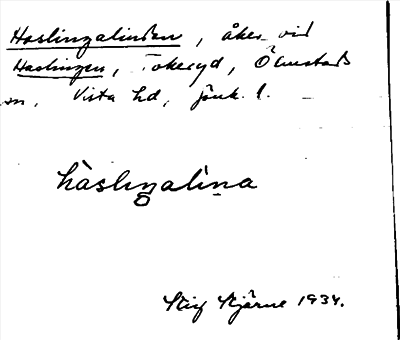 Haslingalinden, åker vid
Haslingen, Tokeryd, Ölmstads
sn, Vista hd, Jönk. l.
hàslıŋalìna
Stig Stjärne 1934.